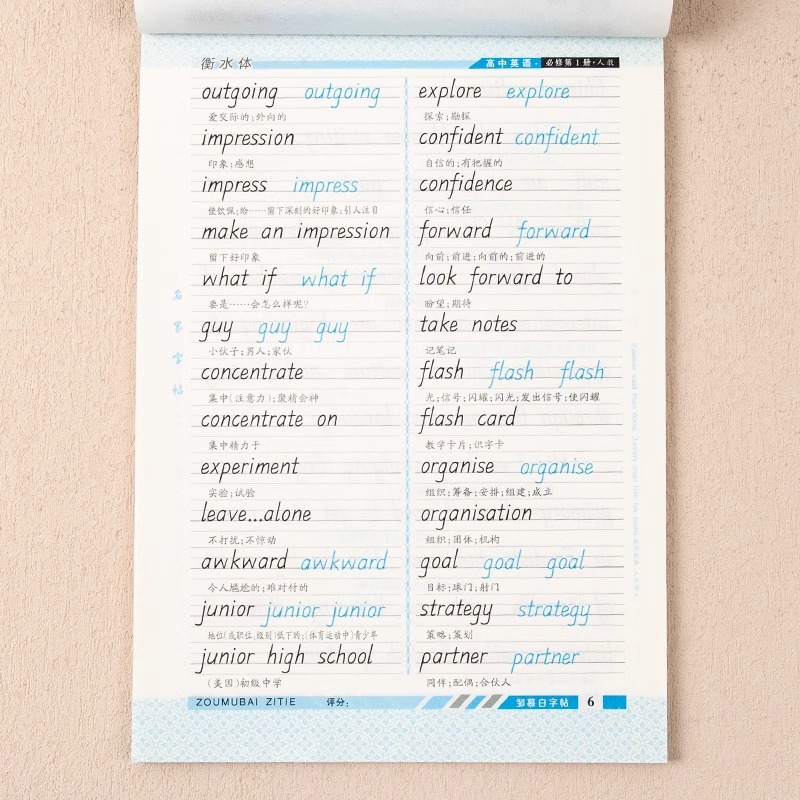 衡水体
高中英语·必修第1册·人教
outgoing outgoing
爱交际的;外向的
impression
印象;感想
impress impress
使钦佩;给……留下深刻的好印象;引人注目
make an impression
留下好印象
what if what if
要是……会怎么样呢?
guy guy guy
小伙子;男人;家伙
concentrate
集中(注意力);聚精会神
concentrate on
集中精力于
experiment
实验;试验
leave...alone
不打扰;不惊动
awkward awkward
令人尴尬的;难对付的
junior junior junior
地位(或职位、级别)低下的;(体育运动中)青少年
junior high school
(美国)初级中学
explore explore
探索;勘探
confident confident
自信的;有把握的
confidence
信心;信任
forward forward
向前;前进;向前的;前进的
look forward to
盼望;期待
take notes
记笔记
flash flash flash
光;信号;闪耀;闪光;发出信号;使闪耀
flash card
教学卡片;识字卡
organise organise
组织;筹备;安排;组建;成立
organisation
组织;团体;机构
goal goal goal
目标;球门;射门
strategy strategy
策略;策划
partner partner
同伴;配偶;合伙人
名家字帖
ZOUMUBAI ZITIE 评分:
邹慕白字帖 6